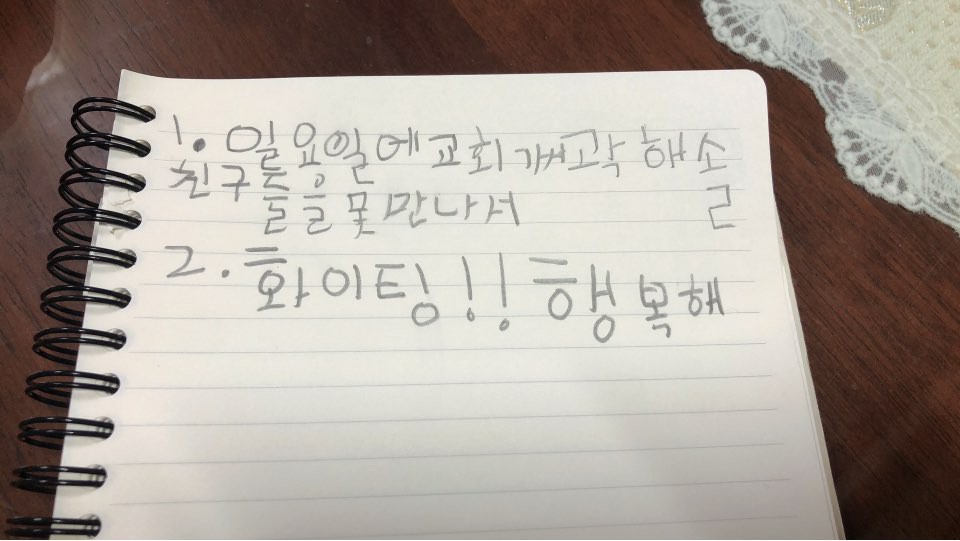 1. 일요일에 교회 가서 고막 해소
친구들을 못 만나서 글
2. 화이팅!! 행복해